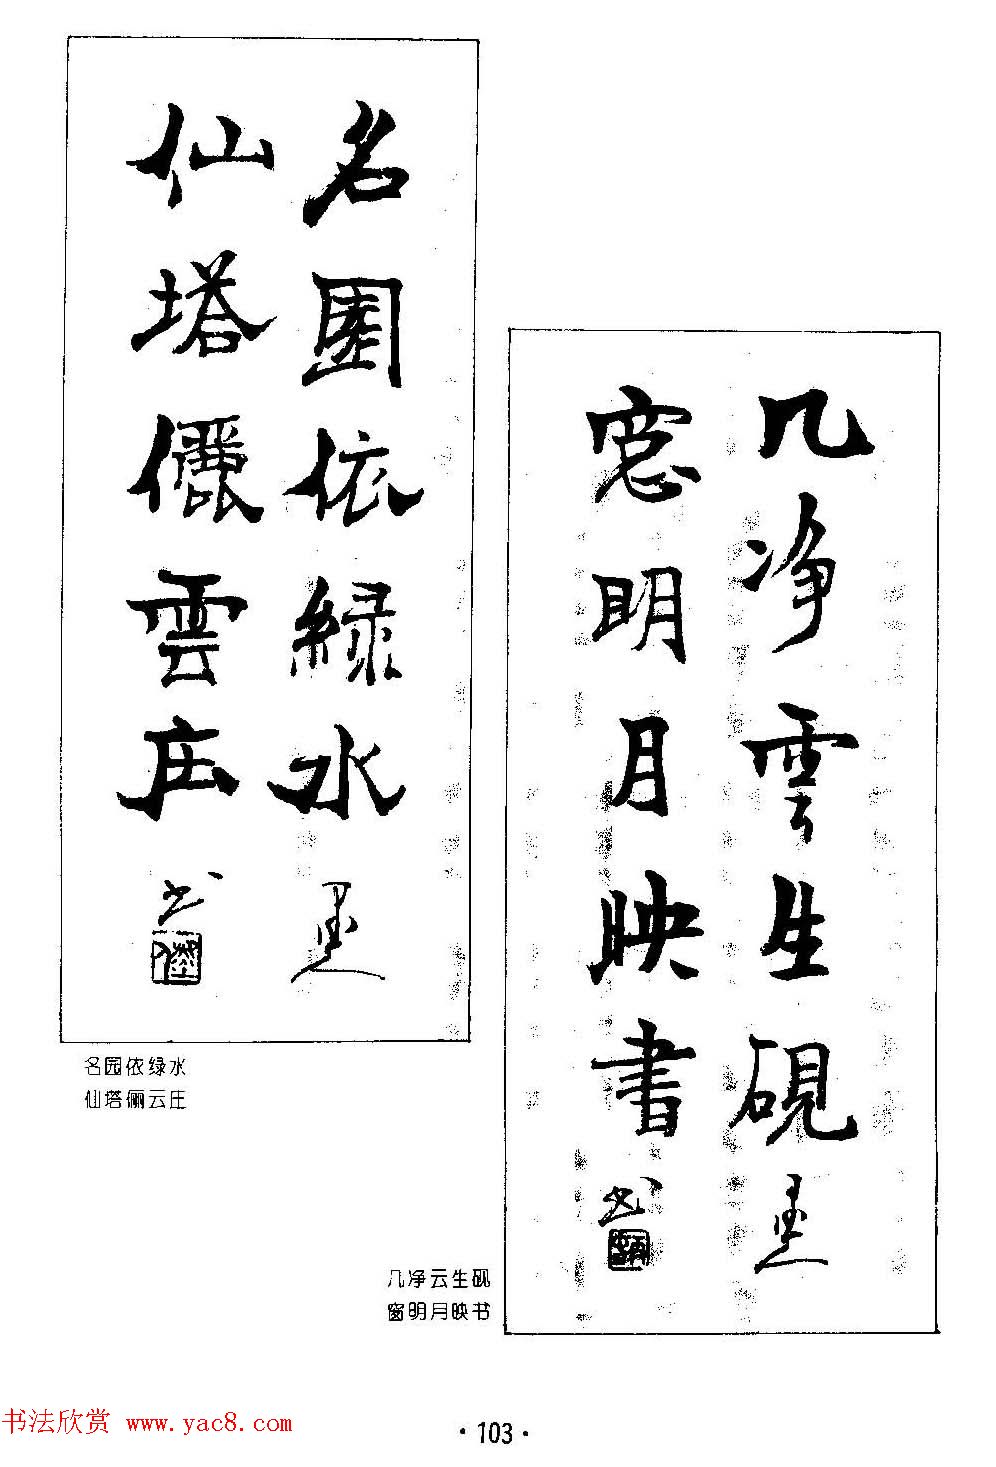 名園依綠水
仙塔儷雲庄
墨
书
名园依绿水
仙塔俪云庄
几净雲生硯
窓明月映書
墨
书
几净云生砚
窗明月映书
书法欣赏 www.yac8.com
·103·